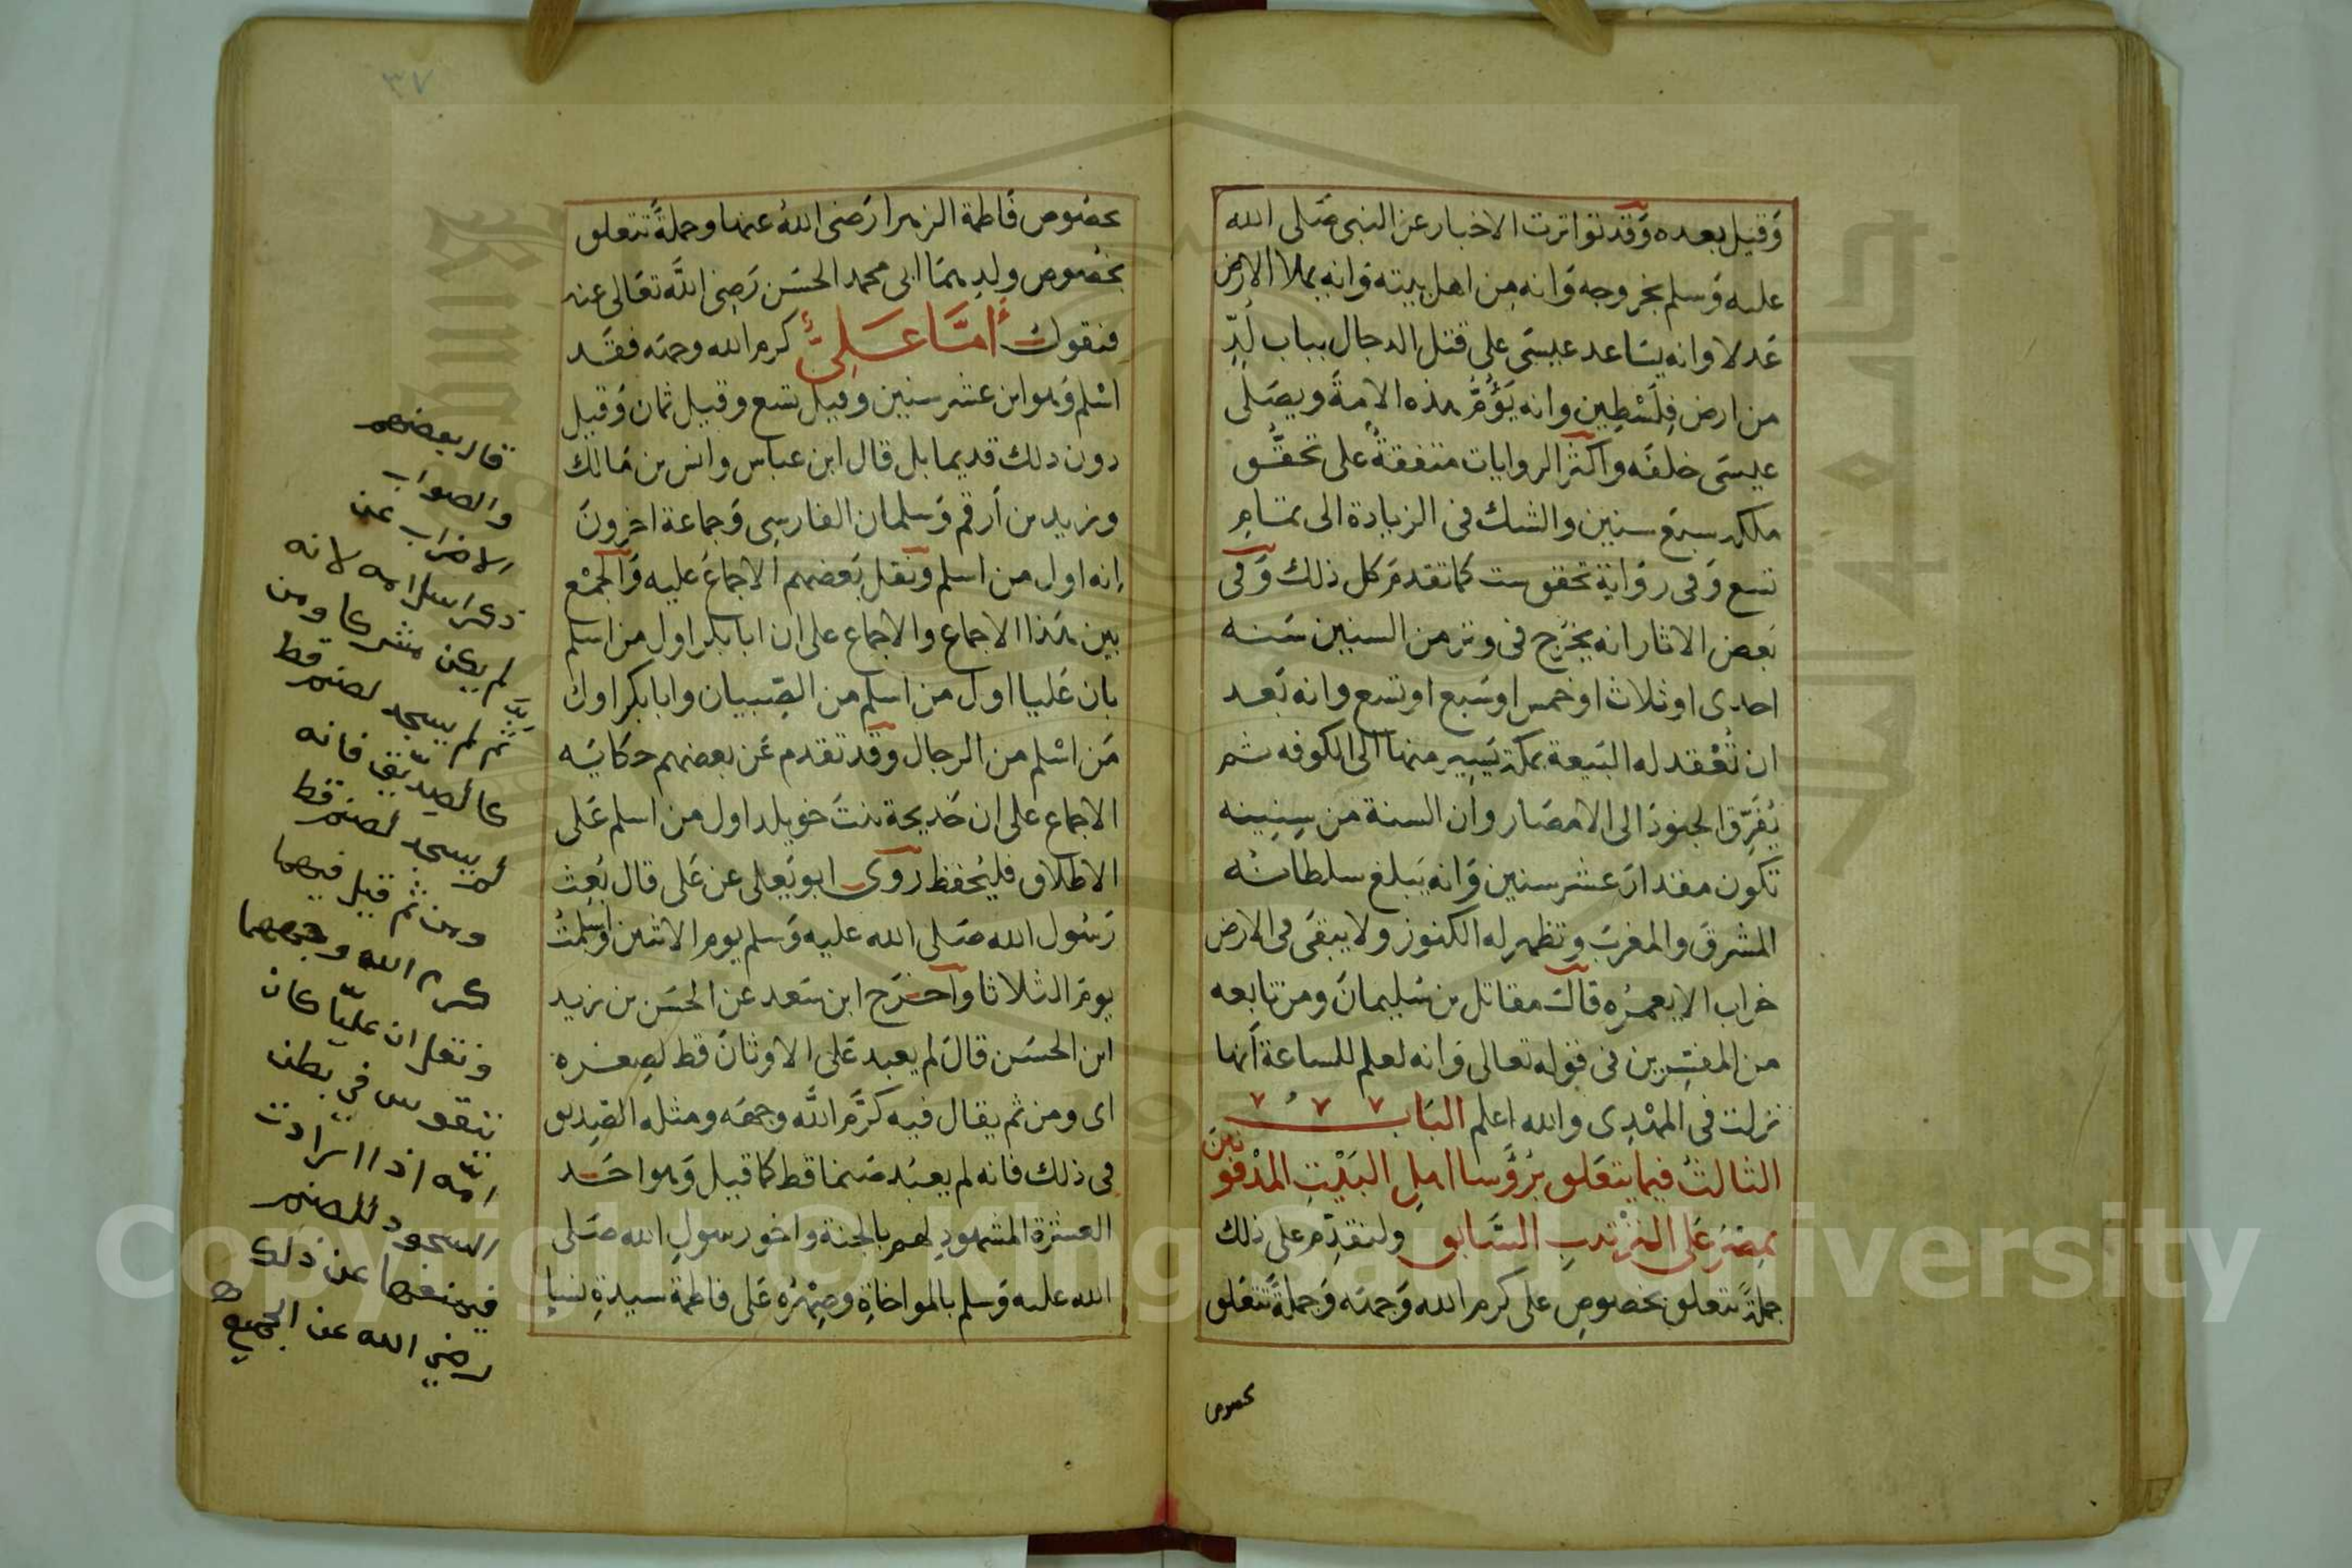 وقيل بعده وقد تواترت الاخبار عن النبي صلى الله
عليه وسلم بخروجه وانه من اهل بيته وانه يملا الارض
عدلا وانه يساعد عيسى على قتل الدجال بباب لُدّ
من ارض فلسطين وانه يؤمّ هذه الامة ويصلى
عيسى خلفه واكثر الروايات متفقة على تحقق
ملكه سبع سنين والشك فى الزيادة الى تمام
تسع وفى رواية تحقق ست كما تقدم كل ذلك وفى
بعض الاثار انه يخرج فى وتر من السنين سنه
احدى او ثلاث او خمس او سبع او تسع وانه بعد
ان تُعْقد له البيعة بمكة يسير منها الى الكوفه ثم
يُفَرِّق الجنود الى الامصار وان السنة من سنينه
تكون مقدار عشر سنين وانه يبلغ سلطانه
المشرق والمغرب وتظهر له الكنوز ولا يبقى فى الارض
خراب الا يعمره قال مقاتل بن سليمان ومن تابعه
من المفسرين فى قوله تعالى وانه لعلم للساعة أنها
نزلت فى المهْدِى والله اعلم الباب
الثالث فيما يتعلق برؤسا اهل البيت المدفونين
بمصر على الترتيب السابق ولنقدم على ذلك
جملة تتعلق بخصوص على كرم الله وجهه وجملة تتعلق
بخصوص
٣٧
بخصوص فاطمة الزهرا رضى الله عنها وجملة تتعلق
بخصوص ولدهما ابى محمد الحسن رضى الله تعالى عنه
فنقول أمّا على كرم الله وجهه فقد
اسلم وهو ابن عشر سنين وقيل تسع وقيل ثمان وقيل
دون ذلك قديما بل قال ابن عباس وانس بن مالك
وزيد بن أرقم وسلمان الفارسى وجماعة اخرون
إنه اول من اسلم ونقل بعضهم الاجماع عليه والجمع
بين هذا الاجماع والاجماع على ان ابا بكر اول من اسلم
بان عليا اول من اسلم من الصبيان وابا بكر اول
من اسلم من الرجال وقد تقدم عن بعضهم حكاية
الاجماع على ان خديجة بنت خويلد اول من اسلم على
الاطلاق فليحفظ روى ابو يعلى عن على قال بُعِث
رسول الله صلى الله عليه وسلم يوم الاثنين واسلمت
يوم الثلاثا وأخرج ابن سعد عن الحسن بن زيد
ابن الحسن قال لم يعبد على الاوثان قط لصغره
اى ومن ثم يقال فيه كرّم الله وجهه ومثله الصديق
فى ذلك فانه لم يعبد صنما قط كما قيل وهو احد
العشرة المشهود لهم بالجنة واخو رسول الله صلى
الله عليه وسلم بالمواخاة وصِهْرُه على فاطمة سيدة نسا
قال بعضهم
والصواب
الاضراب عن
ذكر اسلامه لانه
لم يكن مشركا ومن
ثم لم يسجد لصنم قط
كالصديق فانه
لم يسجد لصنم قط
ومن ثم قيل فيهما
كرم الله وجههما
ونقل ان عليّا كان
يتقوس في بطن
امّه اذا ارادت
السجود للصنم
فيمنعها عن ذلك
رضي الله عن الجميع
Copyright © King Saud University